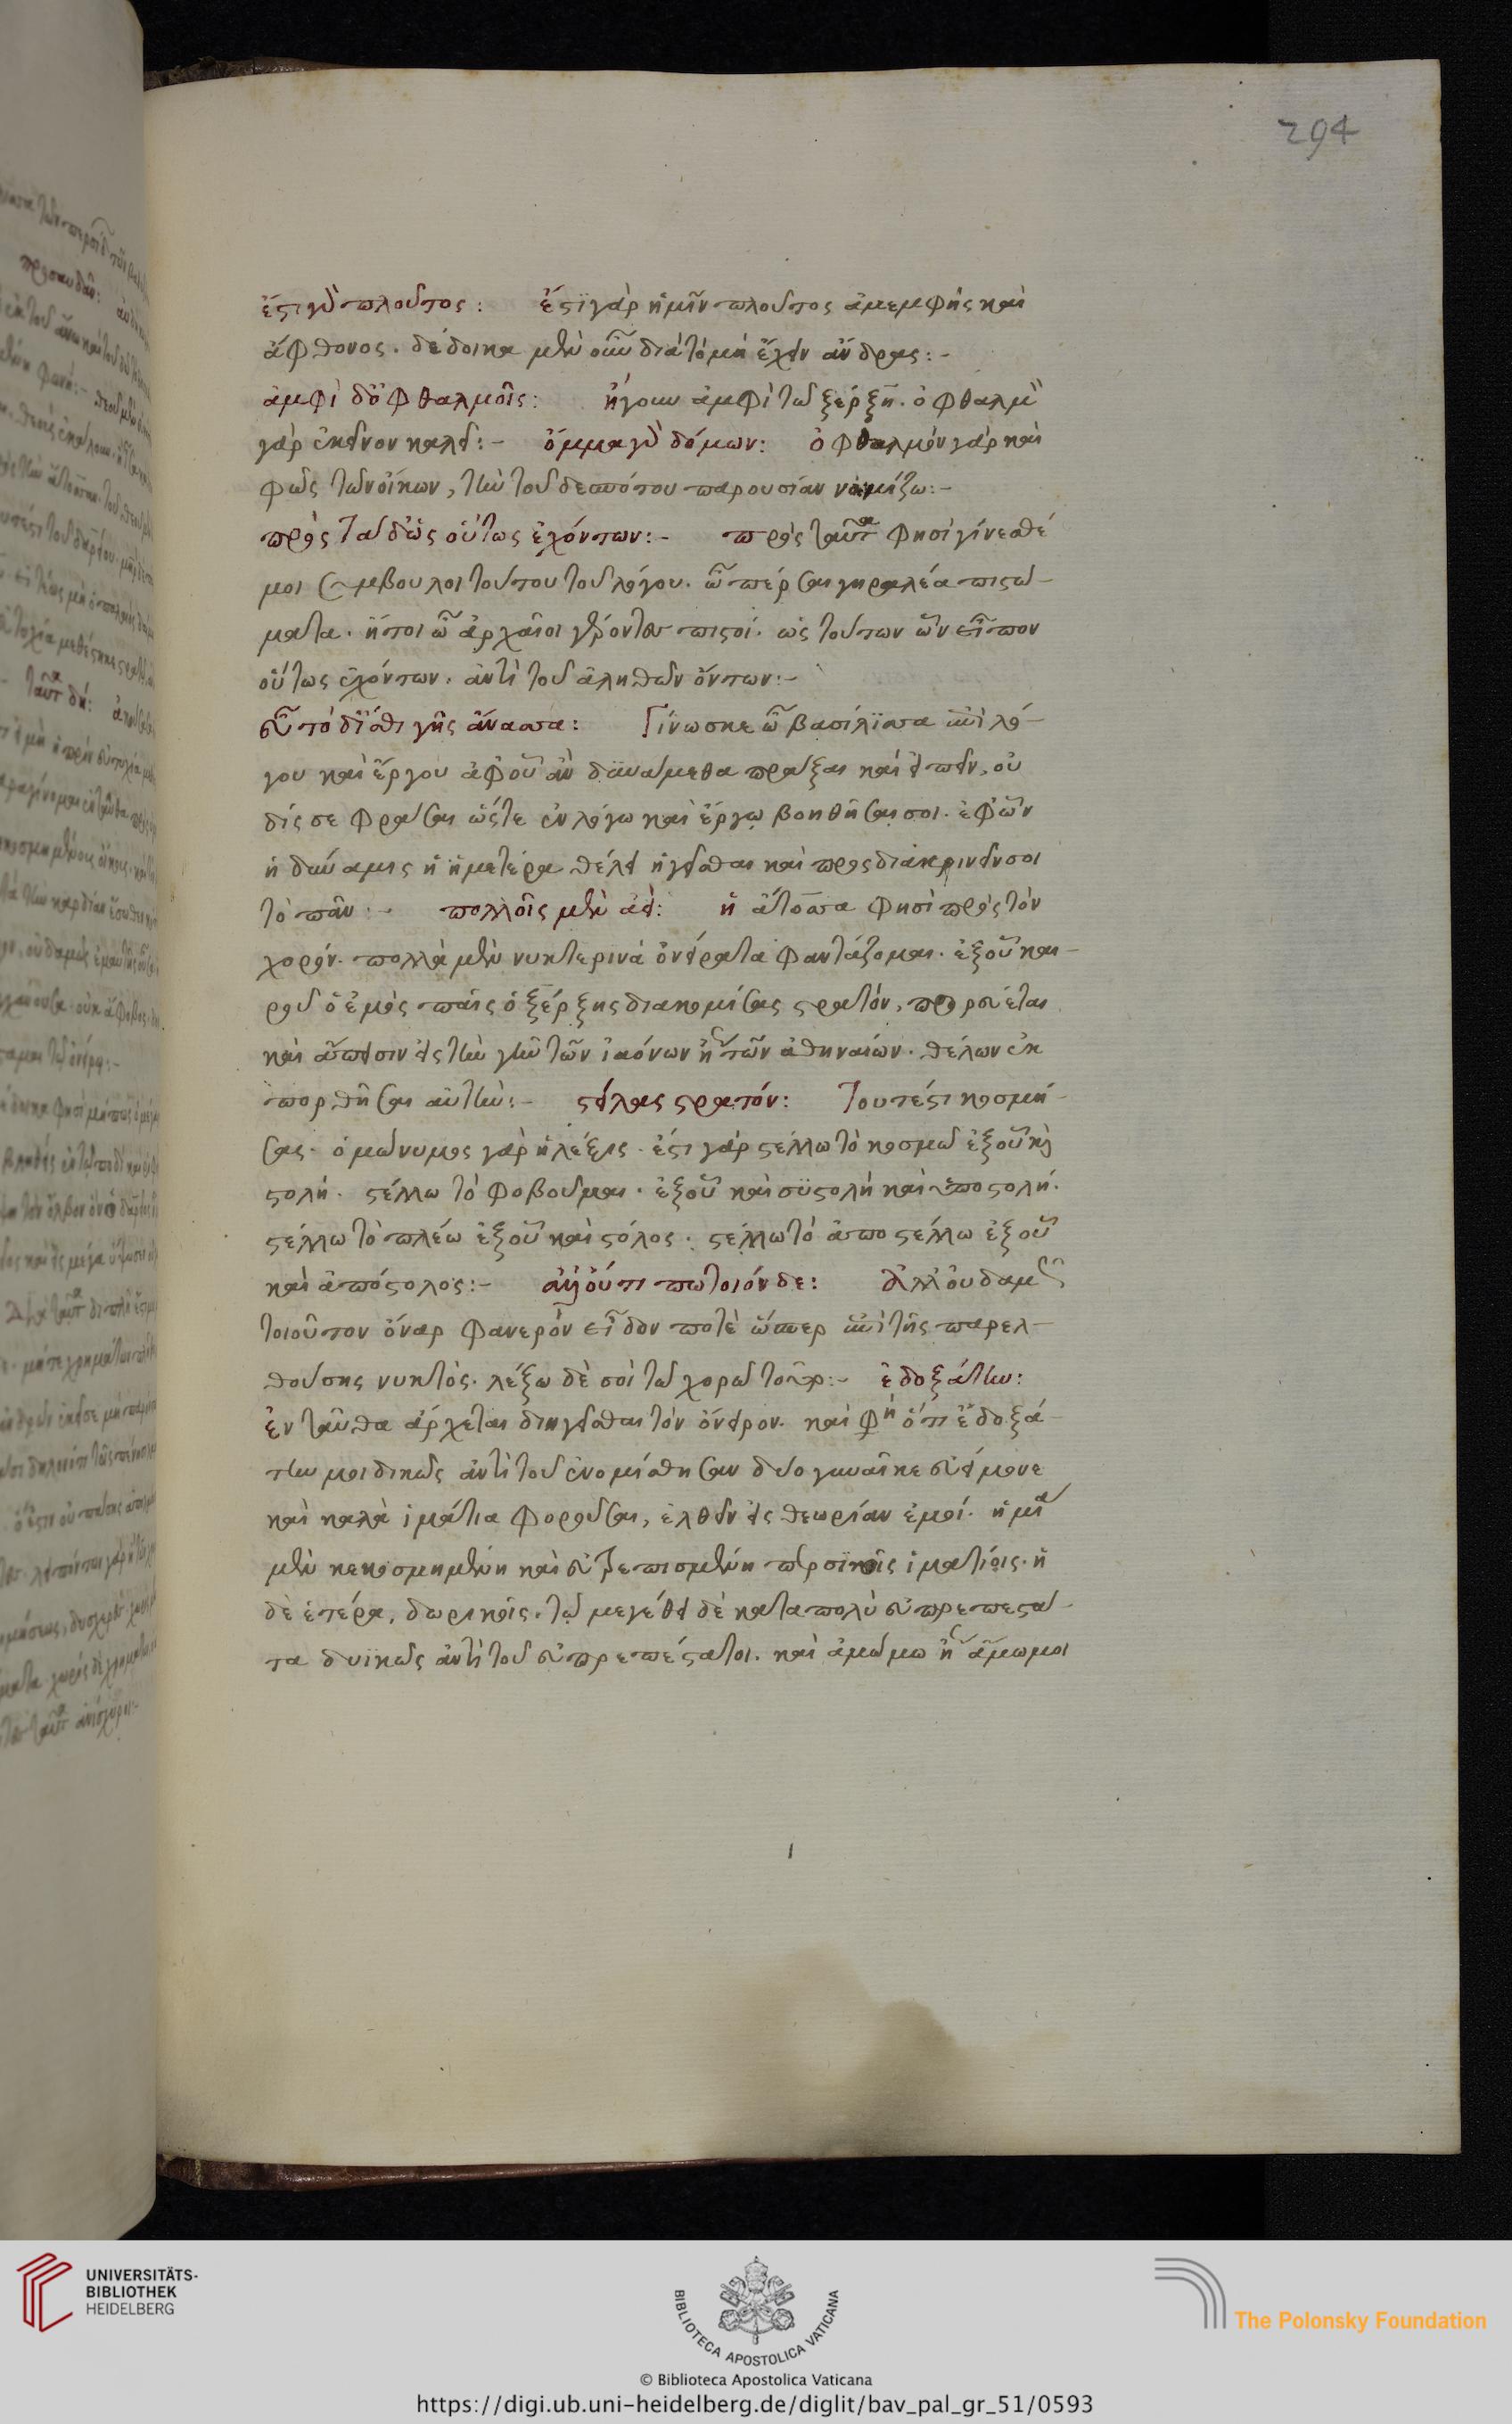 294
ἔστι γὰρ πλοῦτος: ἔστι γὰρ ἡμῖν πλοῦτος ἀμεμφὴς καὶ
ἄφθονος. δέδοικα μὲν οὖν διὰ τὸ μὴ ἔχειν ἄνδρας:-
ἀμφὶ δ' ὀφθαλμοῖς: ἤγουν ἀμφὶ τῶ ξέρξη. ὀφθαλμὸν
γὰρ ἐκεῖνον καλεῖ:- ὄμμα γὰρ δόμων: ὀφθαλμὸν γὰρ καὶ
φῶς τῶν οἴκων, τὴν τοῦ δεσπότου παρουσίαν νομίζω:-
πρὸς τάδ' ὡς οὕτως ἐχόντων:- πρὸς ταῦτα φησὶ γίνεσθέ
μοι σύμβουλοι τούτου τοῦ λόγου. ὦ πέρσαι γηραλέα πιστώ-
ματα. ἤτοι ὦ ἀρχαῖοι γέροντες πιστοί. ὡς τούτων ὧν εἶπον
οὕτως ἐχόντων. ἀντὶ τοῦ ἀληθῶν ὄντων:-
εὖ τόδ' ἴσθι γῆς ἄνασσα: Γίνωσκε ὦ βασίλισσα ἐπὶ λό-
γου καὶ ἔργου ἀφ' οὗ ἂν δυνάμεθα πρᾶξαι καὶ εἰπεῖν, οὐ
δίς σε φράσαι ὥστε ἐν λόγω καὶ ἔργω βοηθῆσαι σοι. ἐφ' ὧν
ἡ δύναμις ἡ ἡμετέρα θέλει ἡγεῖσθαι καὶ προσδιακρινεῖν σοι
τὸ πᾶν:- πολλοῖς μὲν ἀεὶ: ἡ ἄτοσσα φησὶ πρὸς τὸν
χορόν. πολλὰ μὲν νυκτερινὰ ὀνείρατα φαντάζομαι. ἐξ οὗ και-
ροῦ ὁ ἐμὸς παῖς ὁ ξέρξης διακομίσας στρατόν, πορεύεται
καὶ ἄπεισιν εἰς τὴν γῆν τῶν ἰαόνων ἤτοι τῶν ἀθηναίων. θέλων ἐκ
πορθῆσαι αὐτήν:- στείλας στρατόν: Τουτέστι κοσμή-
σας. ὁμώνυμος γὰρ ἡ λέξις. ἔστι γὰρ στέλλω τὸ κοσμῶ ἐξ οὗ καὶ
στολή. στέλλω τὸ φοβοῦμαι. ἐξ οὗ καὶ συστολὴ καὶ ὑποστολή.
στέλλω τὸ πλέω ἐξ οὗ καὶ στόλος. στέλλω τὸ ἀποστέλλω ἐξ οὗ
καὶ ἀπόστολος:- ἀλλ' οὔτι πω τοιόνδε: Ἀλλ' οὐδαμῶς
τοιοῦτον ὄναρ φανερὸν εἶδον ποτὲ ὥσπερ ἐπὶ τῆς παρελ-
θούσης νυκτὸς. λέξω δὲ σοὶ τῶ χορῶ τοῦτο:- ἐδοξάτην:
ἐνταῦθα ἄρχεται διηγεῖσθαι τὸν ὄνειρον. καὶ φησὶν ὅτι ἐδοξά-
την μοι δικῶς ἀντὶ τοῦ ἐνομίσθησαν δύο γυναῖκε εὐείμονε
καὶ καλὰ ἱμάτια φοροῦσαι, ἐλθεῖν εἰς θεωρίαν ἐμοί. ἡ μία
μὲν κεκοσμημένη καὶ εὐτρεπισμένη περσικοῖς ἱματίοις. ἡ
δὲ ἑτέρα, δωρικοῖς. τῶ μεγέθει δὲ καταπολὺ εὐπρεπεστά-
τα δυϊκῶς ἀντὶ τοῦ εὐπρεπέσταται. καὶ ἀμώμω ἤτοι ἄμωμοι
UNIVERSITÄTS-
BIBLIOTHEK
HEIDELBERG
BIBLIOTECA APOSTOLICA VATICANA
The Polonsky Foundation
© Biblioteca Apostolica Vaticana
https://digi.ub.uni-heidelberg.de/diglit/bav_pal_gr_51/0593